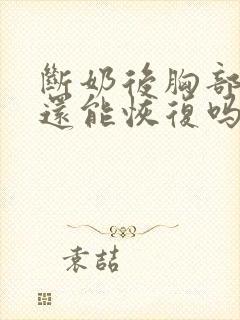 斷奶後胸部
還能恢復吗
袁喆